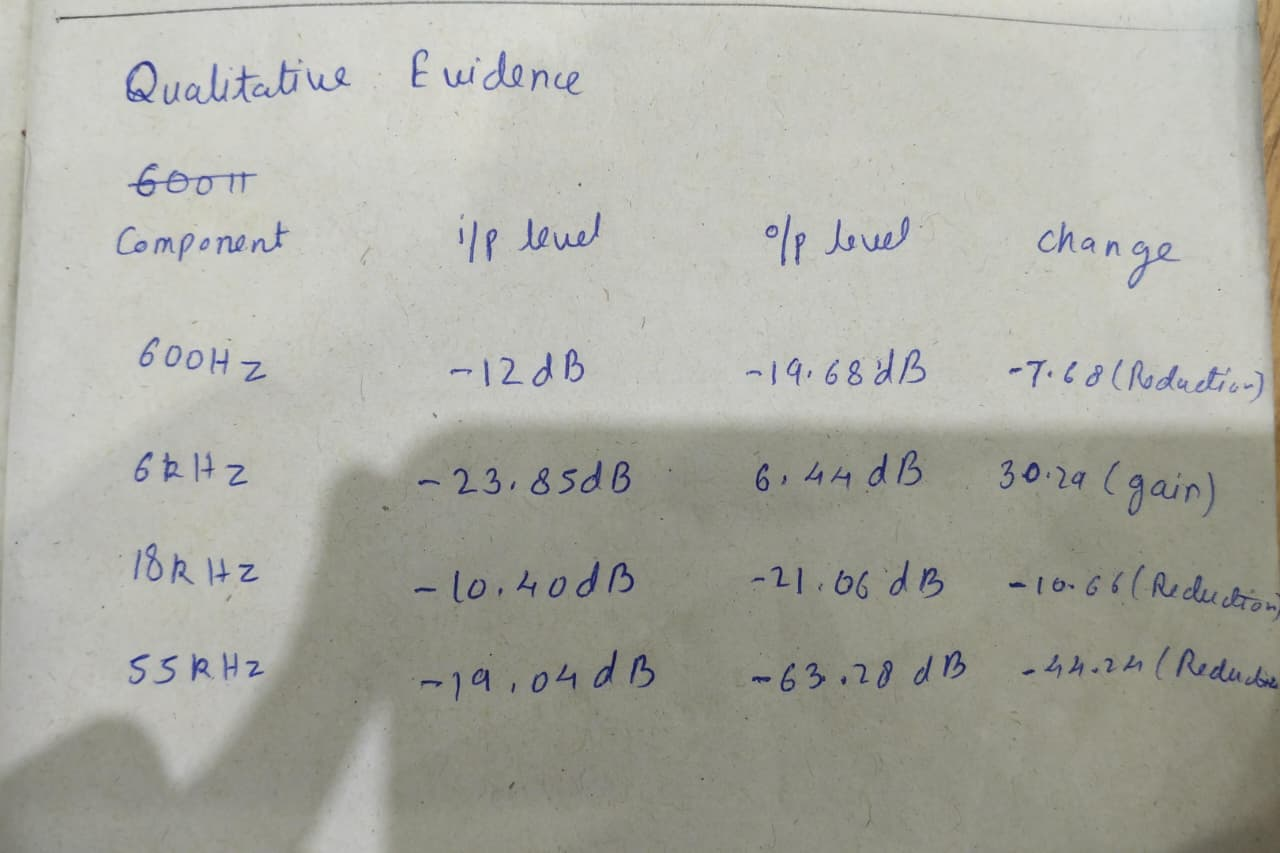 Qualitative Evidence
600H
Component i/p level o/p level change
600Hz -12dB -19.68dB -7.68 (Reduction)
6kHz -23.85dB 6.44dB 30.29 (gain)
18kHz -10.40dB -21.06dB -10.66 (Reduction)
55kHz -19.04dB -63.28dB -44.24 (Reduction